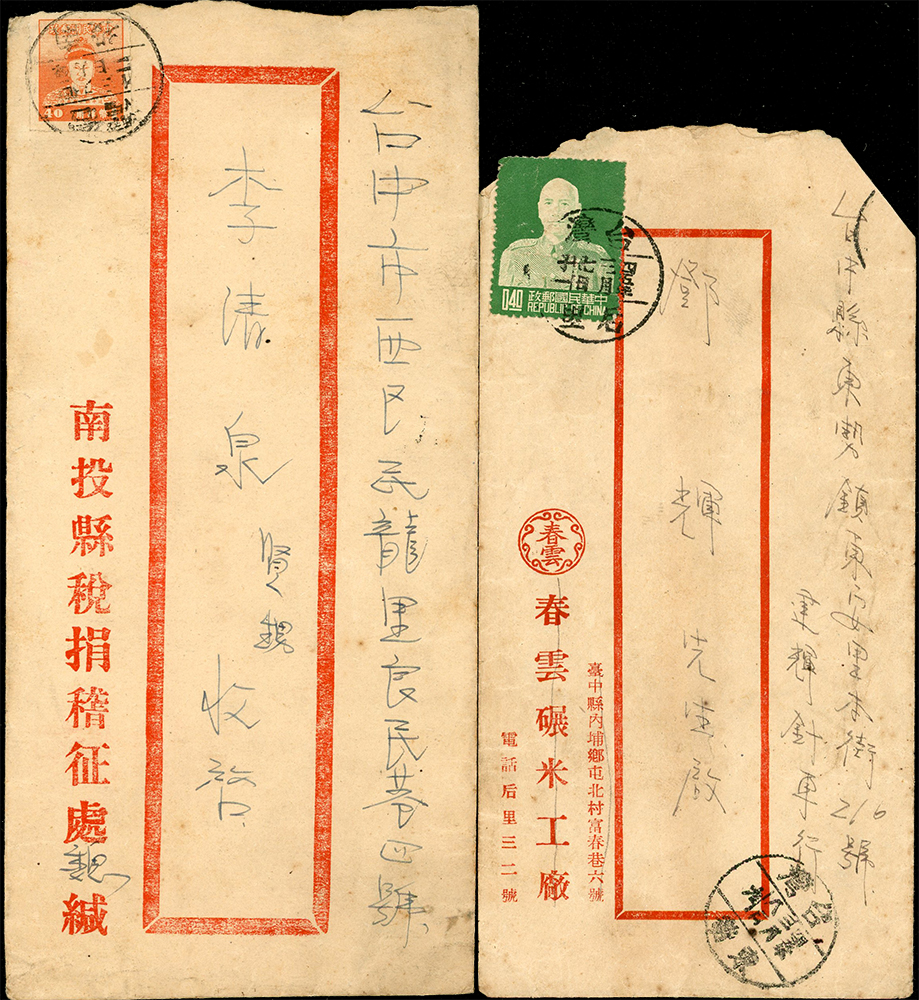 台中市西區民龍里良民巷四號
李清泉 賢甥 收啓
南投縣稅捐稽征處緘
40
台中縣東勢鎮東安里本街216號
建輝針車行
鄧輝先生啟
中華民國郵政
REPUBLIC OF CHINA
0.40
台灣
春雲
春雲碾米工廠
臺中縣內埔鄉屯北村富春巷六號
電話后里三二號
台灣